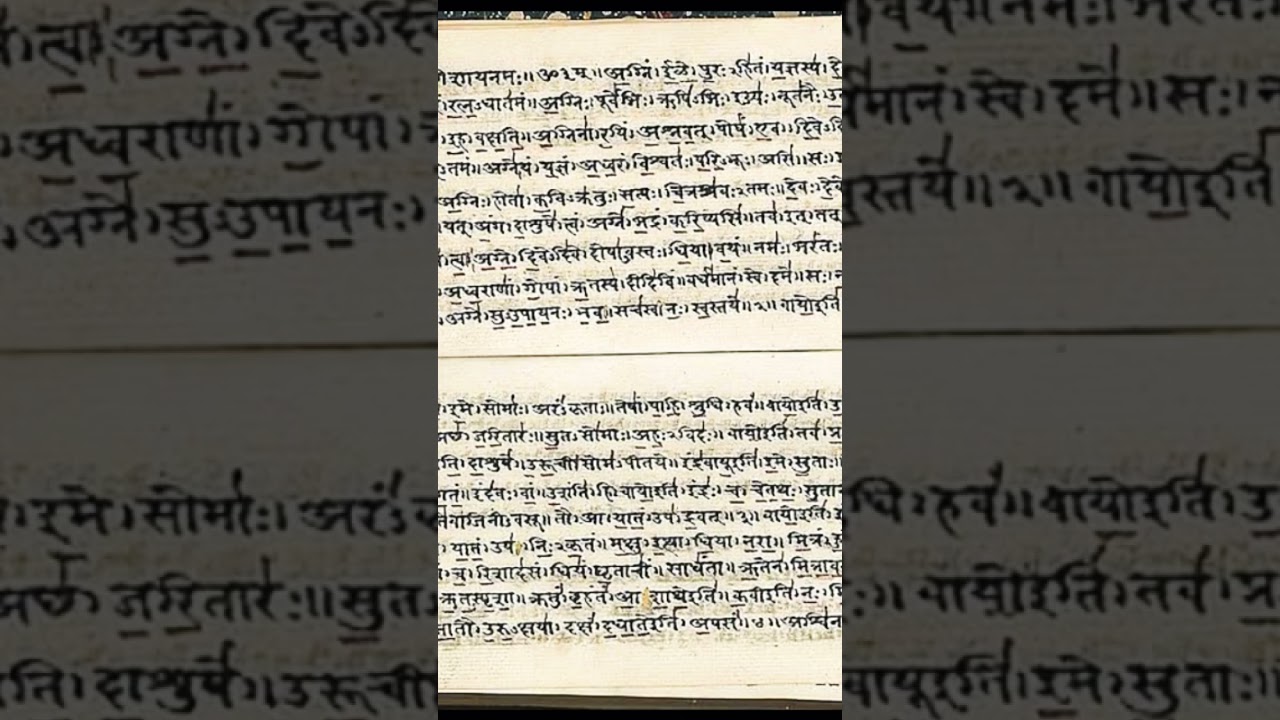 शायनमः॥ॐ३म्॥अग्निं।ईळे।पुरःऽहितं।यज्ञस्य।
रत्नऽधातमं॥अग्निः।पूर्वेभिः।ऋषिऽभिः।ईड्यः।नूतनैः।
वसति॥अग्निना।रयिं।अश्नवत्।पोषं।एव।दिवे
तमं॥अग्ने।यं।यज्ञं।अध्वरं।विश्वतः।परिऽभूः।असि॥सः।
अग्निः।होता।कविऽक्रतुः।सत्यः।चित्रश्रवःऽतमः॥देवः।
यत्।अंग।दाशुषे।त्वं।अग्ने।भद्रं।करिष्यसि॥तव।इत्।तत्
त्वा।अग्ने।दिवेऽदिवे।दोषाऽवस्तः।धिया।वयं॥नमः।भरंतः।
अध्वराणां।गोपां।ऋतस्य।दीदिविं॥वर्धमानं।स्वे।दमे॥सः।
अग्ने।सुऽउपायनः।भव॥सचस्व।नः।स्वस्तये॥२॥वायोइति
इमे।सोमाः।अरंऽकृताः॥तेषां।पाहि।श्रुधि।हवं॥वायोइति।
जरितारः॥सुतऽसोमाः।अहःऽविदः॥वायोइति।तव।
दाशुषे॥उरूची।सोमऽपीतये॥इंद्रवायूइति।इमे।सुताः॥
इंदवः।वां।उशंति।हि॥वायोइति।इंद्रः।च।चेतथः।
वाजिनीवसू॥तौ।आ।यातं।उप।द्रवत्॥३॥वायोइति।
यातं।उप।निःऽकृतं॥मक्षु।इत्था।धिया।नरा॥मित्रं।
च।रिशादसं॥धियं।घृताचीं।साधंता॥ऋतेन।
ऋतऽस्पृशा॥क्रतुं।बृहंतं।आशाथेइति॥कवीइति।नः।
उरुऽक्षया॥दक्षं।दधातेइति।अपसं॥४॥